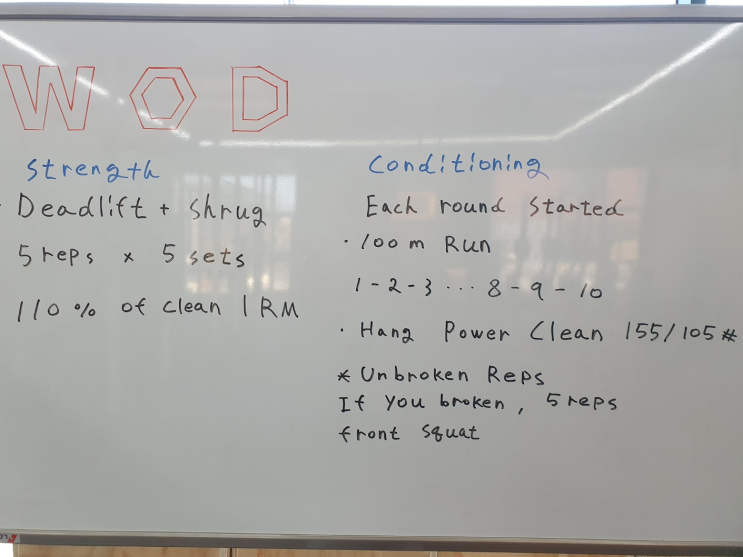 WOD
Strength
Deadlift + Shrug
5 reps × 5 sets
110% of clean 1RM
Conditioning
Each round started
· 100 m Run
1 - 2 - 3 ··· 8 - 9 - 10
· Hang Power Clean 155/105#
* Unbroken Reps
If you broken, 5 reps
front squat